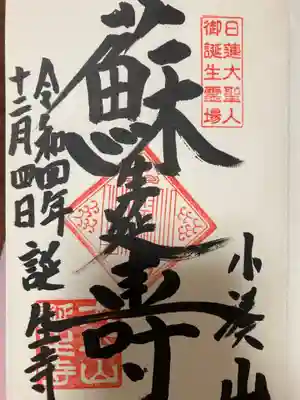 日蓮大聖人
御誕生霊場
小湊山
蘇生延壽
令和四年
十二月四日
誕生寺